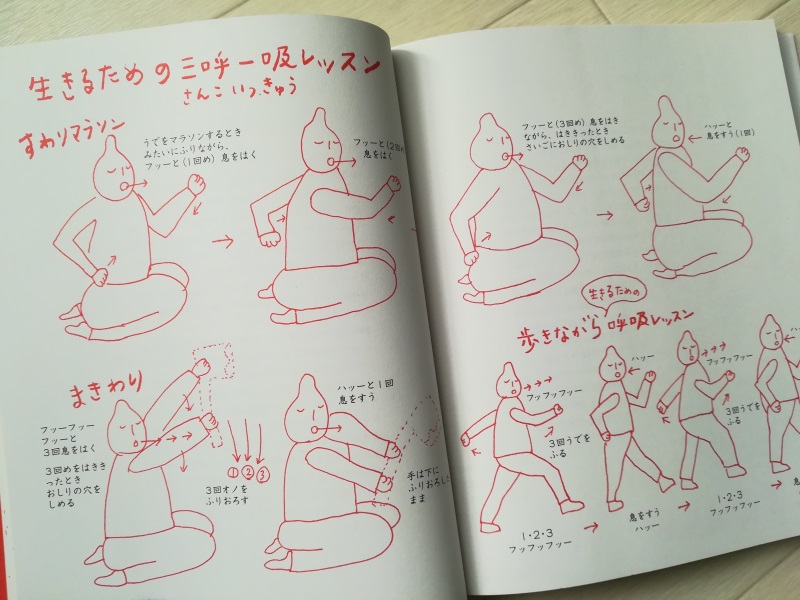 生きるための三呼一吸レッスン
さんこいっきゅう
すわりマラソン
うでをマラソンするとき
みたいにふりながら、
フッーと(1回め)息をはく
フッーと(2回め)
息をはく
まきわり
フッーフッー
フッーと
3回息をはく
3回めをはきき
ったとき
おしりの穴を
しめる
① ② ③
3回オノを
ふりおろす
ハッーと1回
息をすう
手は下に
ふりおろした
まま
フッーと(3回め)息をはき
ながら、はききったとき
さいごにおしりの穴をしめる
ハッーと
息をすう(1回)
生きるための
歩きながら呼吸レッスン
フッフッフッー
3回うでを
ふる
1・2・3
フッフッフッー
ハッー
息をすう
ハッー
フッフッフッー
3回うでを
ふる
1・2・3
フッフッフッー